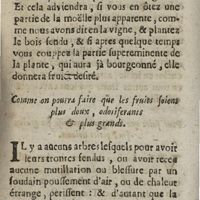 Et cela adviendra, si vous en ôtez une
partie de la moëlle plus apparente, com-
me nous avons dit en la vigne, & plantez
le bois fendu, & si apres quelque temps
vous couppez la partie supereminente de
la plante, qui aura jà bourgeonné, elle
donnera fruict desiré.
Comme on pourra faire que les fruits soient
plus doux, odoriferants
& plus grands.
IL y a aucuns arbres lesquels pour avoir
leurs troncs fendus, ou avoir receu
aucune mutillation ou blessure par un
soudain poussement d'air, ou de chaleur
étrange, perissent: & d'autant que la